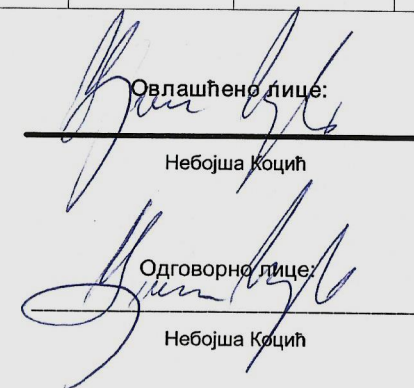 Овлашћено лице:
Небојша Коцић
Одговорно лице:
Небојша Коцић